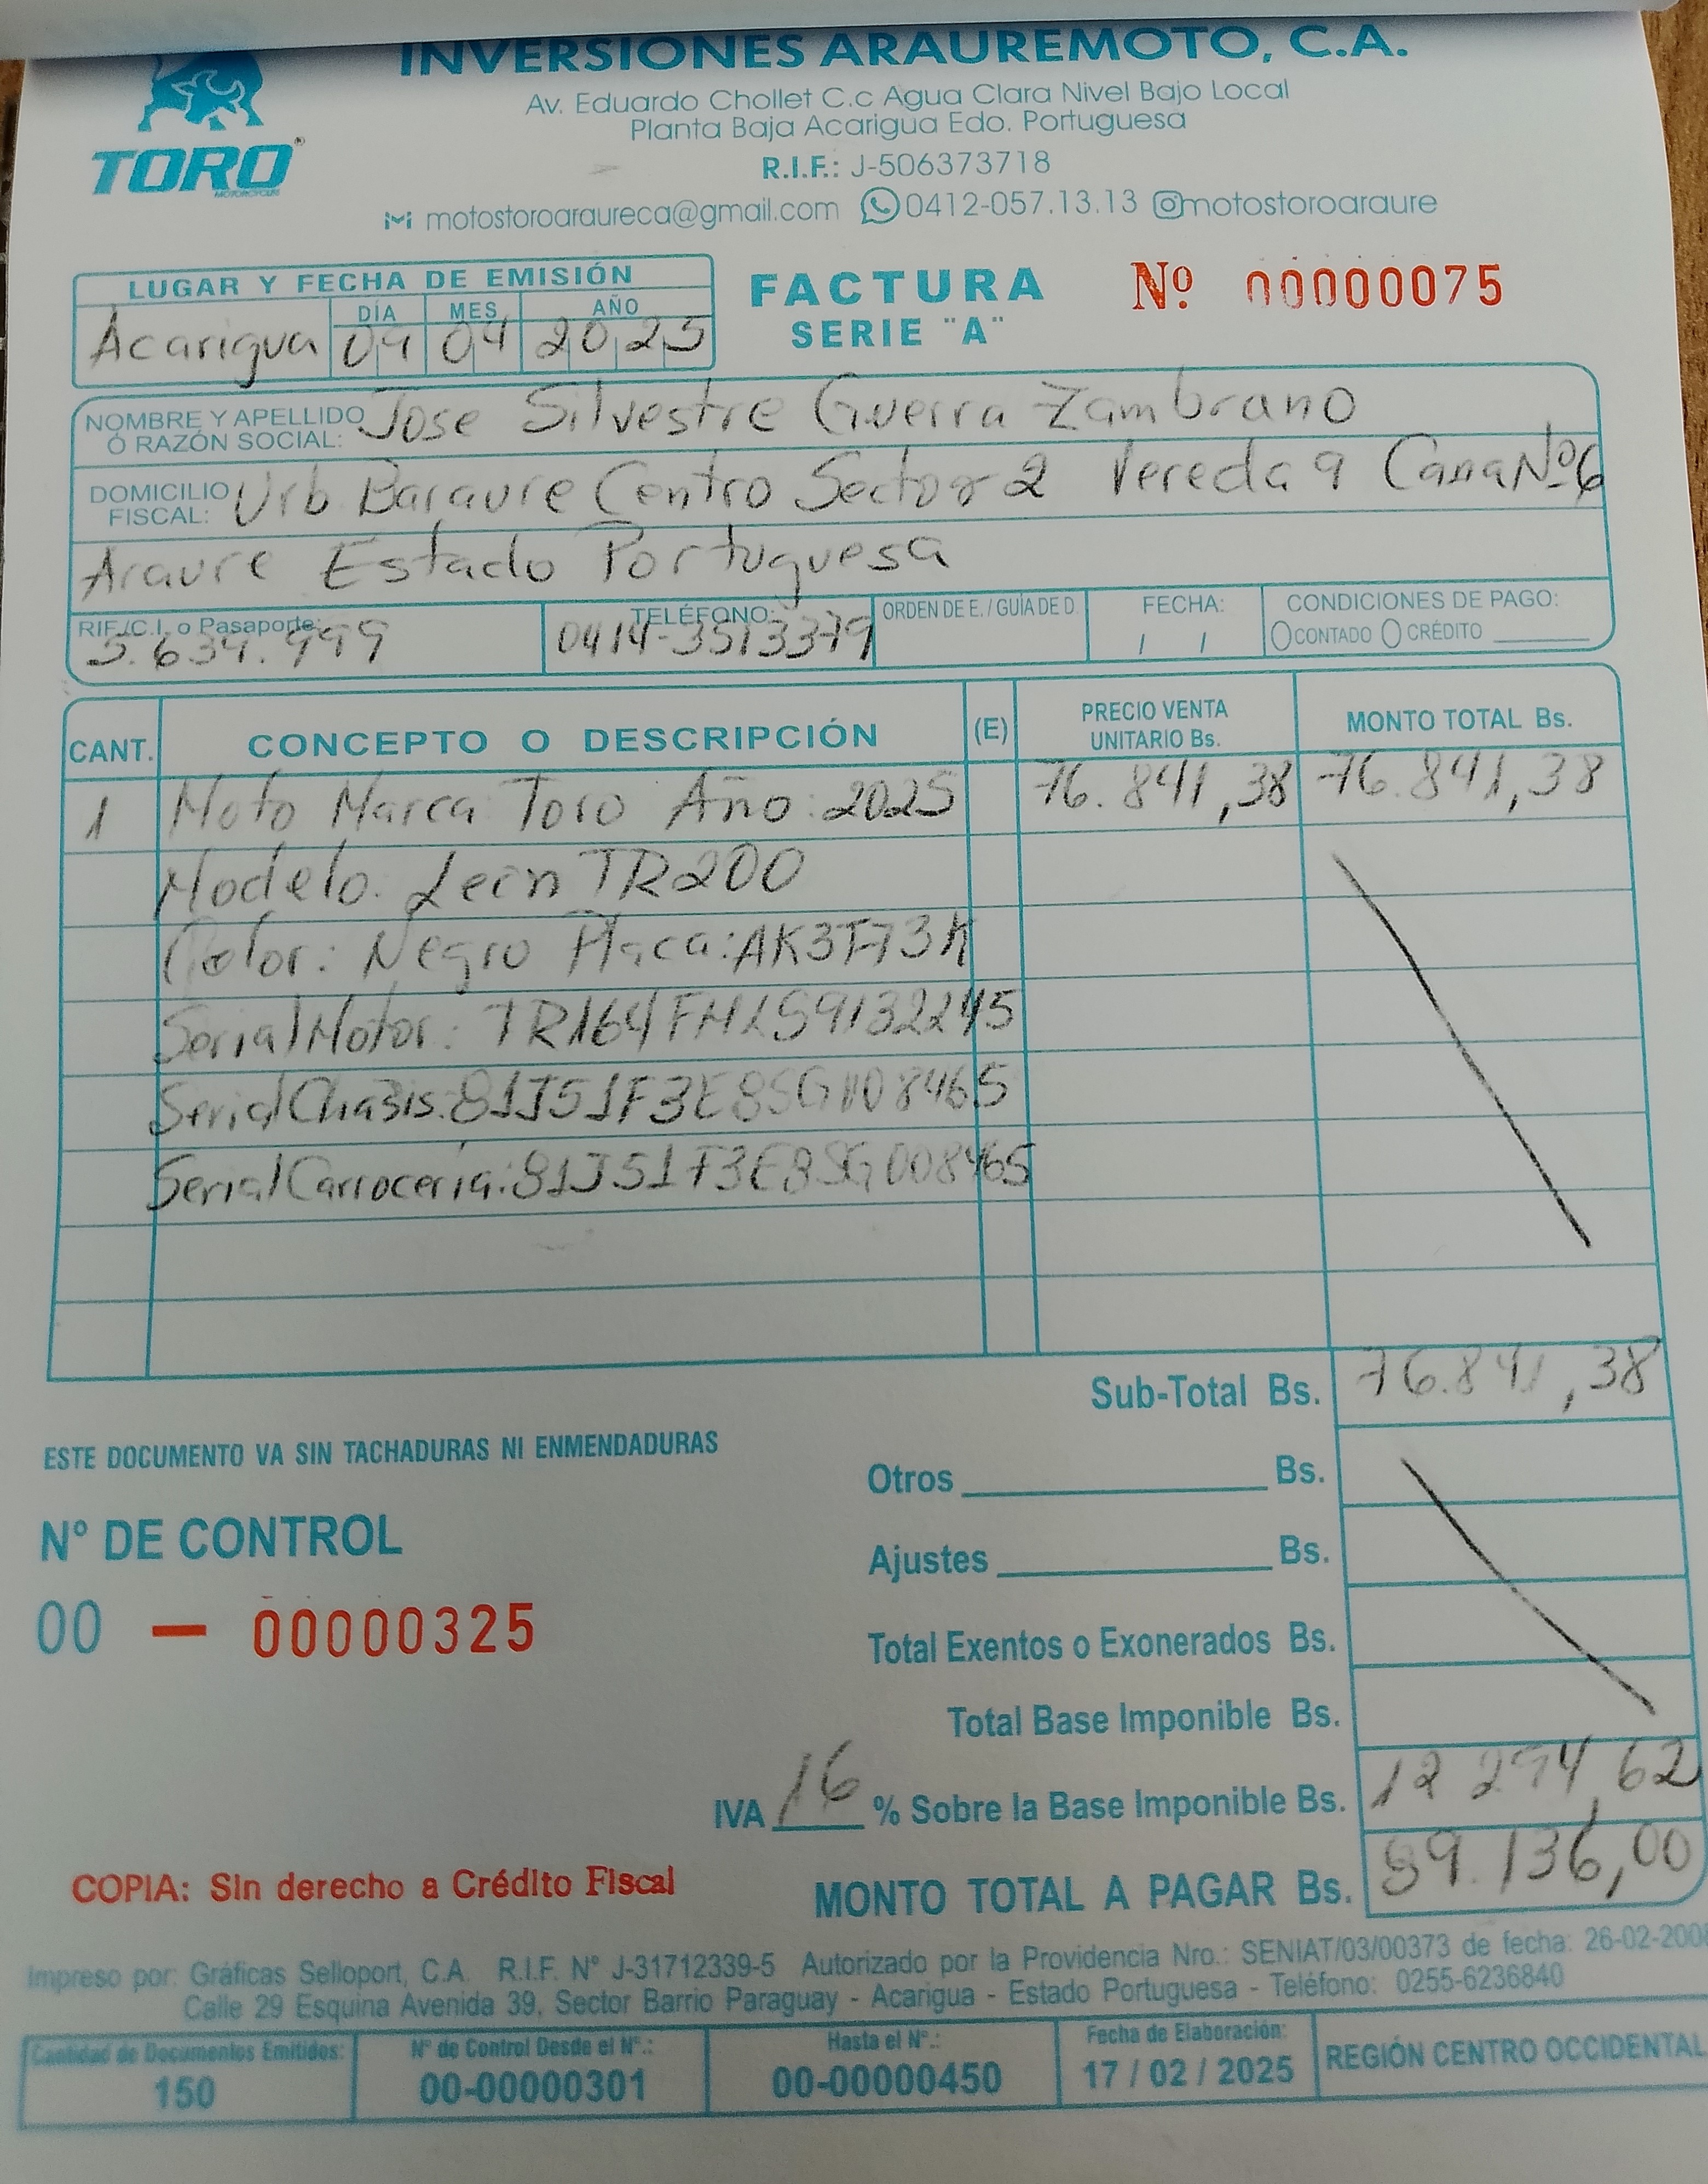 INVERSIONES ARAUREMOTO, C.A.
TORO
Av. Eduardo Chollet C.c Agua Clara Nivel Bajo Local
Planta Baja Acarigua Edo. Portuguesa
R.I.F.: J-506373718
motostoroaraureca@gmail.com 0412-057.13.13 motostoroaraure
LUGAR Y FECHA DE EMISIÓN
DÍA MES AÑO
Acarigua 04 2025
FACTURA Nº 00000075
SERIE "A"
NOMBRE Y APELLIDO Ó RAZÓN SOCIAL: Jose Silvestre Guerra Zambrano
DOMICILIO FISCAL: Urb Baraure Centro Sector 2 Vereda 9 Casa Nº 6
Araure Estado Portuguesa
RIF./C.I. o Pasaporte: 5.634.999
TELÉFONO: 0414-3513379
ORDEN DE E. / GUÍA DE D.
FECHA: / /
CONDICIONES DE PAGO:
CONTADO CRÉDITO
CANT. CONCEPTO O DESCRIPCIÓN (E) PRECIO VENTA UNITARIO Bs. MONTO TOTAL Bs.
1 Moto Marca Toro Año: 2025 76.841,38 76.841,38
Modelo. León TR200
Color: Negro Placa:
Serial Motor:
Serial Chasis:
Serial Carroceria: 81J51F3E8SG008465
Sub-Total Bs. 76.841,38
ESTE DOCUMENTO VA SIN TACHADURAS NI ENMENDADURAS
Otros Bs.
N° DE CONTROL
Ajustes Bs.
00 — 00000325
Total Exentos o Exonerados Bs.
Total Base Imponible Bs.
IVA 16 % Sobre la Base Imponible Bs. 12 294,62
COPIA: Sin derecho a Crédito Fiscal
MONTO TOTAL A PAGAR Bs. 89.136,00
Impreso por: Gráficas Selloport, C.A. R.I.F. N° J-31712339-5 Autorizado por la Providencia Nro.: SENIAT/03/00373 de fecha: 26-02-2008
Calle 29 Esquina Avenida 39, Sector Barrio Paraguay - Acarigua - Estado Portuguesa - Teléfono: 0255-6236840
Cantidad de Documentos Emitidos: N° de Control Desde el N°.: Hasta el N°.: Fecha de Elaboración: REGIÓN CENTRO OCCIDENTAL
150 00-00000301 00-00000450 17 / 02 / 2025